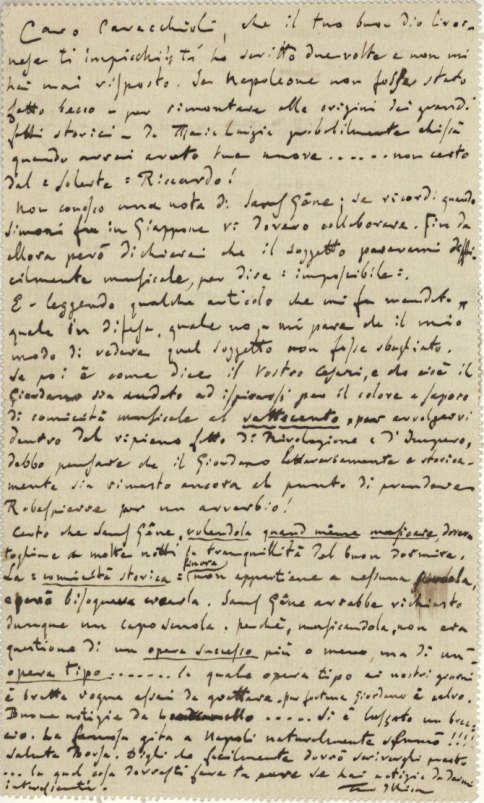 Caro Caracchioli, che il tuo buon dio livor-
nese ti impicchi! T'ho scritto due volte e non mi
hai mai risposto. Se Napoleone non fosse stato
fatto becco – per rimontare alle origini dei grandi
fatti storici – da Maria Luigia probabilmente chissà
quando avrei avuto tue nuove ...... non certo
dal celeste = Riccardo!
Non conosco una nota di Sans Gêne; se ricordi quando
Simoni fu in Giappone vi dovevo collaborare. Fin da
allora però dichiarai che il soggetto parevami diffi-
cilmente musicale, per dire = impossibile =.
E – leggendo qualche articolo che mi fu mandato,
quale in difesa, quale no, a mi pare che il mio
modo di vedere quel soggetto non fosse sbagliato.
Se poi è come dice il Vostro Cesari, e che cioè il
Giordano sia andato ad ispirarsi per il colore e sapore
di comicità musicale al settecento, per avvolgervi
dentro del ripieno fatto di Rivoluzione e d'Impero,
debbo pensare che il Giordano letterariamente e storica-
mente sia rimasto ancora al punto di prendere
Robespierre per un avverbio!
Certo che Sans Gêne, volendola quand même musicare doveva
togliere a molte notti la tranquillità del buon dormire.
La = comicità storica = ancora non appartiene a nessuna
e però bisognava crearla. Sans Gêne avrebbe richiesto
dunque un caposcuola. Perchè, musicandola, non era
questione di un opera successo più o meno, ma di un'
opera tipo ....... la quale opera tipo ai nostri giorni
è brutta rogna assai da grattare. Per fortuna Giordano è calvo.
Buone notizie da ..... Si è lussato un brac-
cio. La famosa gita a Napoli naturalmente sfumò!!!!
Saluta Borsa. Digli che facilmente dovrò scrivergli presto
... la qual cosa dovresti fare tu pure se hai notizie da darmi
interessanti. Tuo Illica